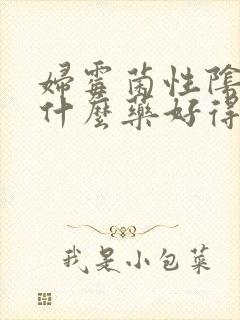 婦霉菌性陰
什麼藥好得
我是小包菜